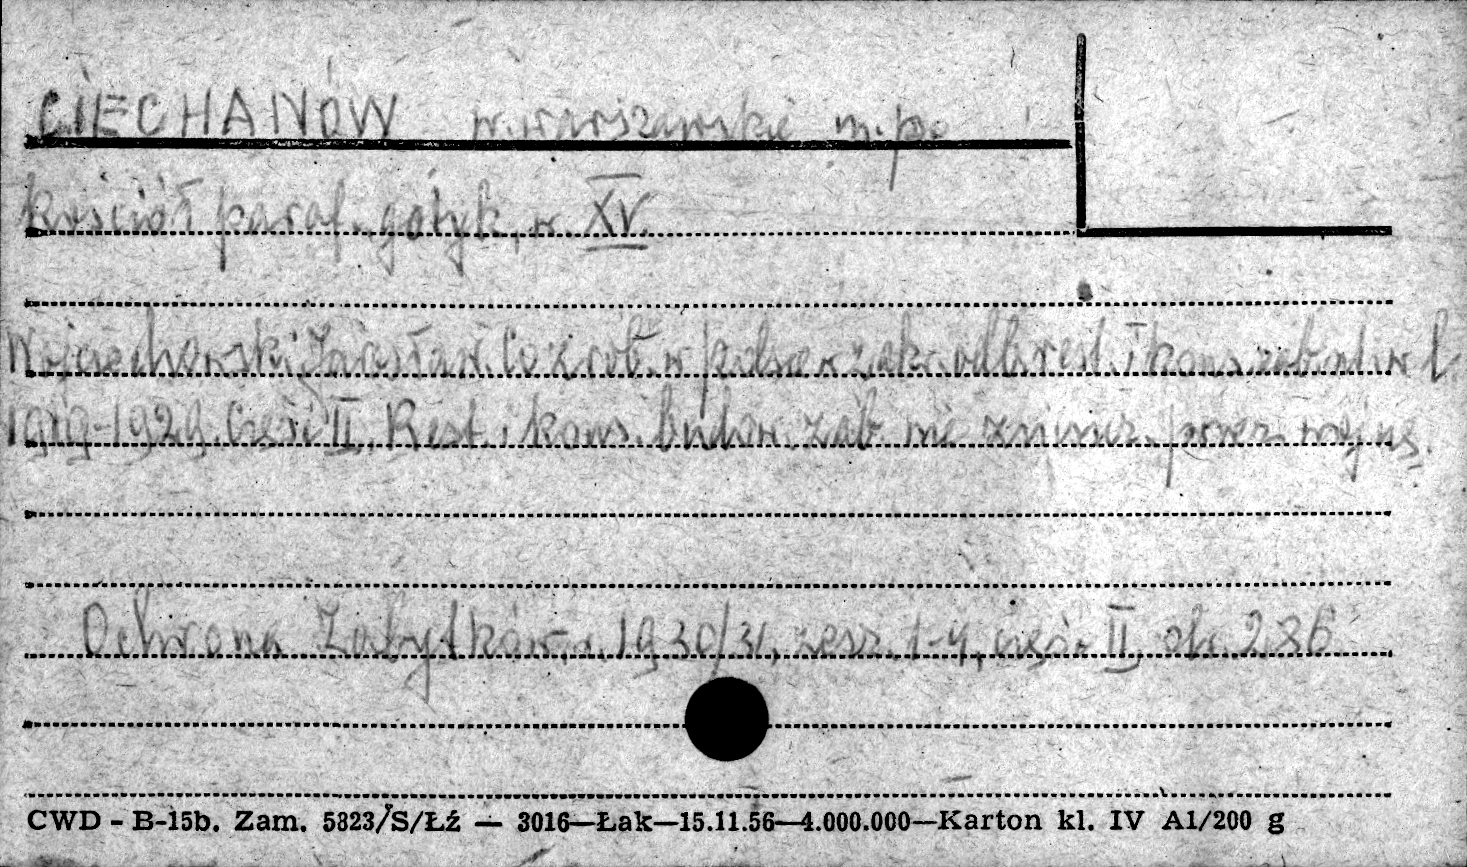 CIECHANÓW w. warszawskie m. po
kościół paraf. gotyk, w. XV.
Wojciechowski Jarosław. Co zrob. w Polsce w zakr. odb. rest. i kons. zabyt. w l.
1919-1929. Część II. Rest. i kons. budow. zab. nie zniszcz. przez wojnę.
Ochrona Zabytków, r. 1930/31, zesz. 1-4, część II, str. 286
CWD - B-15b. Zam. 5823/S/Łź — 3016—Łak—15.11.56—4.000.000—Karton kl. IV A1/200 g